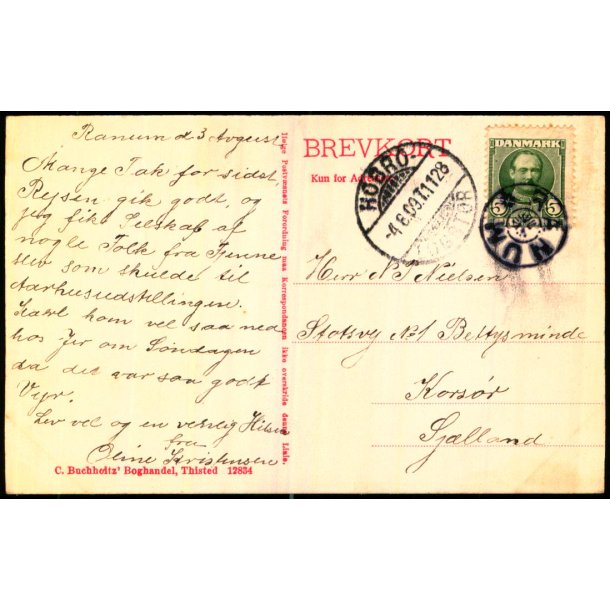 Ranum d 3 August
Mange Tak for sidst,
Rejsen gik godt, og
jeg fik Selskab af
nogle Folk fra Fjenne
slev som skulde til
Aarhusudstillingen.
kom vel saa ned
hos Jer om Søndagen
da det var saa godt
Vejr.
Lev vel og en venlig Hilsen
fra
Oline Kristensen
C. Buchholtz' Boghandel, Thisted 12834
Ifølge Postvæsenets Forordning maa Korrespondancen ikke overskride denne Linie.
BREVKORT
Kun for
HOBRO
-4.8.09.T.1128
DANMARK
5 5
Herr N P Nielsen
Stotsvej No 1 Bettysminde
Korsør
Sjælland